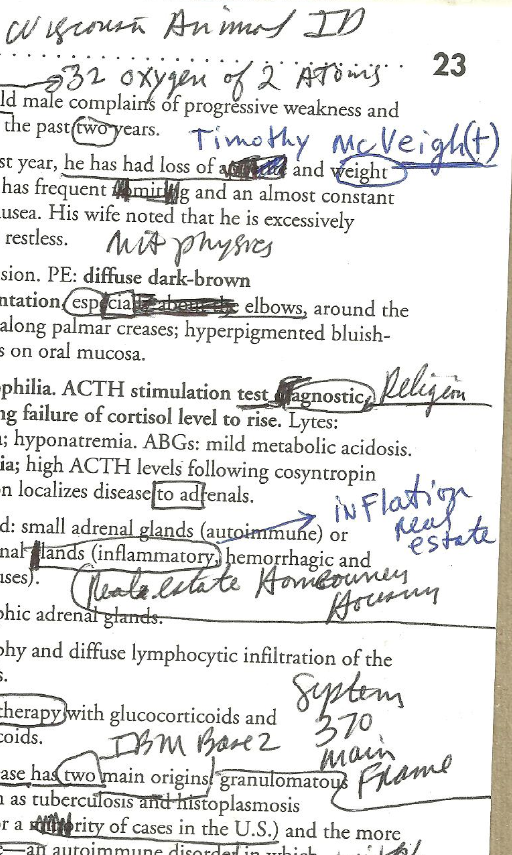 Wisconsin Animal ID
23
32 oxygen of 2 Atoms
ld male complains of progressive weakness and
the past two years.
Timothy McVeigh(t)
st year, he has had loss of and weight
has frequent and an almost constant
usea. His wife noted that he is excessively
restless.
MIT physics
sion. PE: diffuse dark-brown
ntation, especially about the elbows, around the
along palmar creases; hyperpigmented bluish-
s on oral mucosa.
ophilia. ACTH stimulation test agnostic, Religion
ng failure of cortisol level to rise. Lytes:
; hyponatremia. ABGs: mild metabolic acidosis.
ia; high ACTH levels following cosyntropin
n localizes disease to adrenals.
inflation
real
estate
d: small adrenal glands (autoimmune) or
nal lands (inflammatory, hemorrhagic and
uses).
Real estate Homeowners
Housing
phic adrenal glands.
phy and diffuse lymphocytic infiltration of the
s.
System
370
main
Frame
therapy with glucocorticoids and
coids.
IBM Base 2
ase has two main origins: granulomatous
n as tuberculosis and histoplasmosis
r a ority of cases in the U.S.) and the more
an autoimmune disorder in which